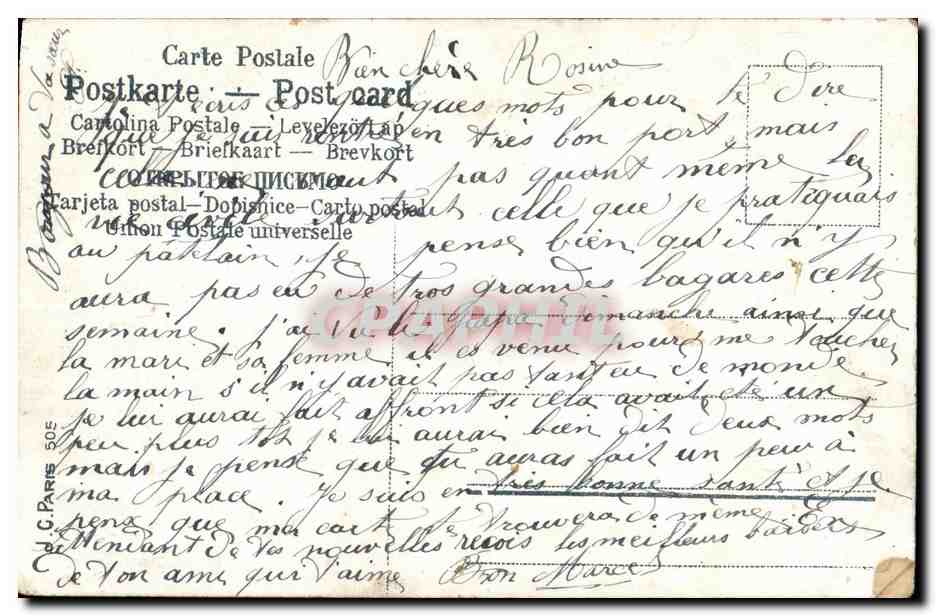 Carte Postale
Postkarte — Post card
Cartolina Postale — Levelező-Lap
Brefkort — Briefkaart — Brevkort
ОТКРЫТОЕ ПИСЬМО
Tarjeta postal—Dopisnice—Carto postal
Union Postale universelle
Bien chère Rosine
quelques mots pour te dire
que je suis en très bon port, mais
pas quant même la
celle que je pratiquais
au je pense bien qu'il n'y
aura pas eu de tros grandes bagares cette
semaine. j'ai vu le dimanche ainsi que
la mari et sa femme il es venu pour me toucher
la main s'il n'y avait pas tant eu de monde.
je lui aurai fait affront si cela avait été un
peu plus tot je lui aurai bien dit deux mots
mais je pense que tu auras fait un peu à
ma place. Je suis en très bonne santé et je
pense que ma carte te trouvera de même. En
attendant de tes nouvelles reçois les meilleurs
de ton ami qui t'aime Marcel
Bonjour a ta sœur
J. C. PARIS 505
CPAPHIL